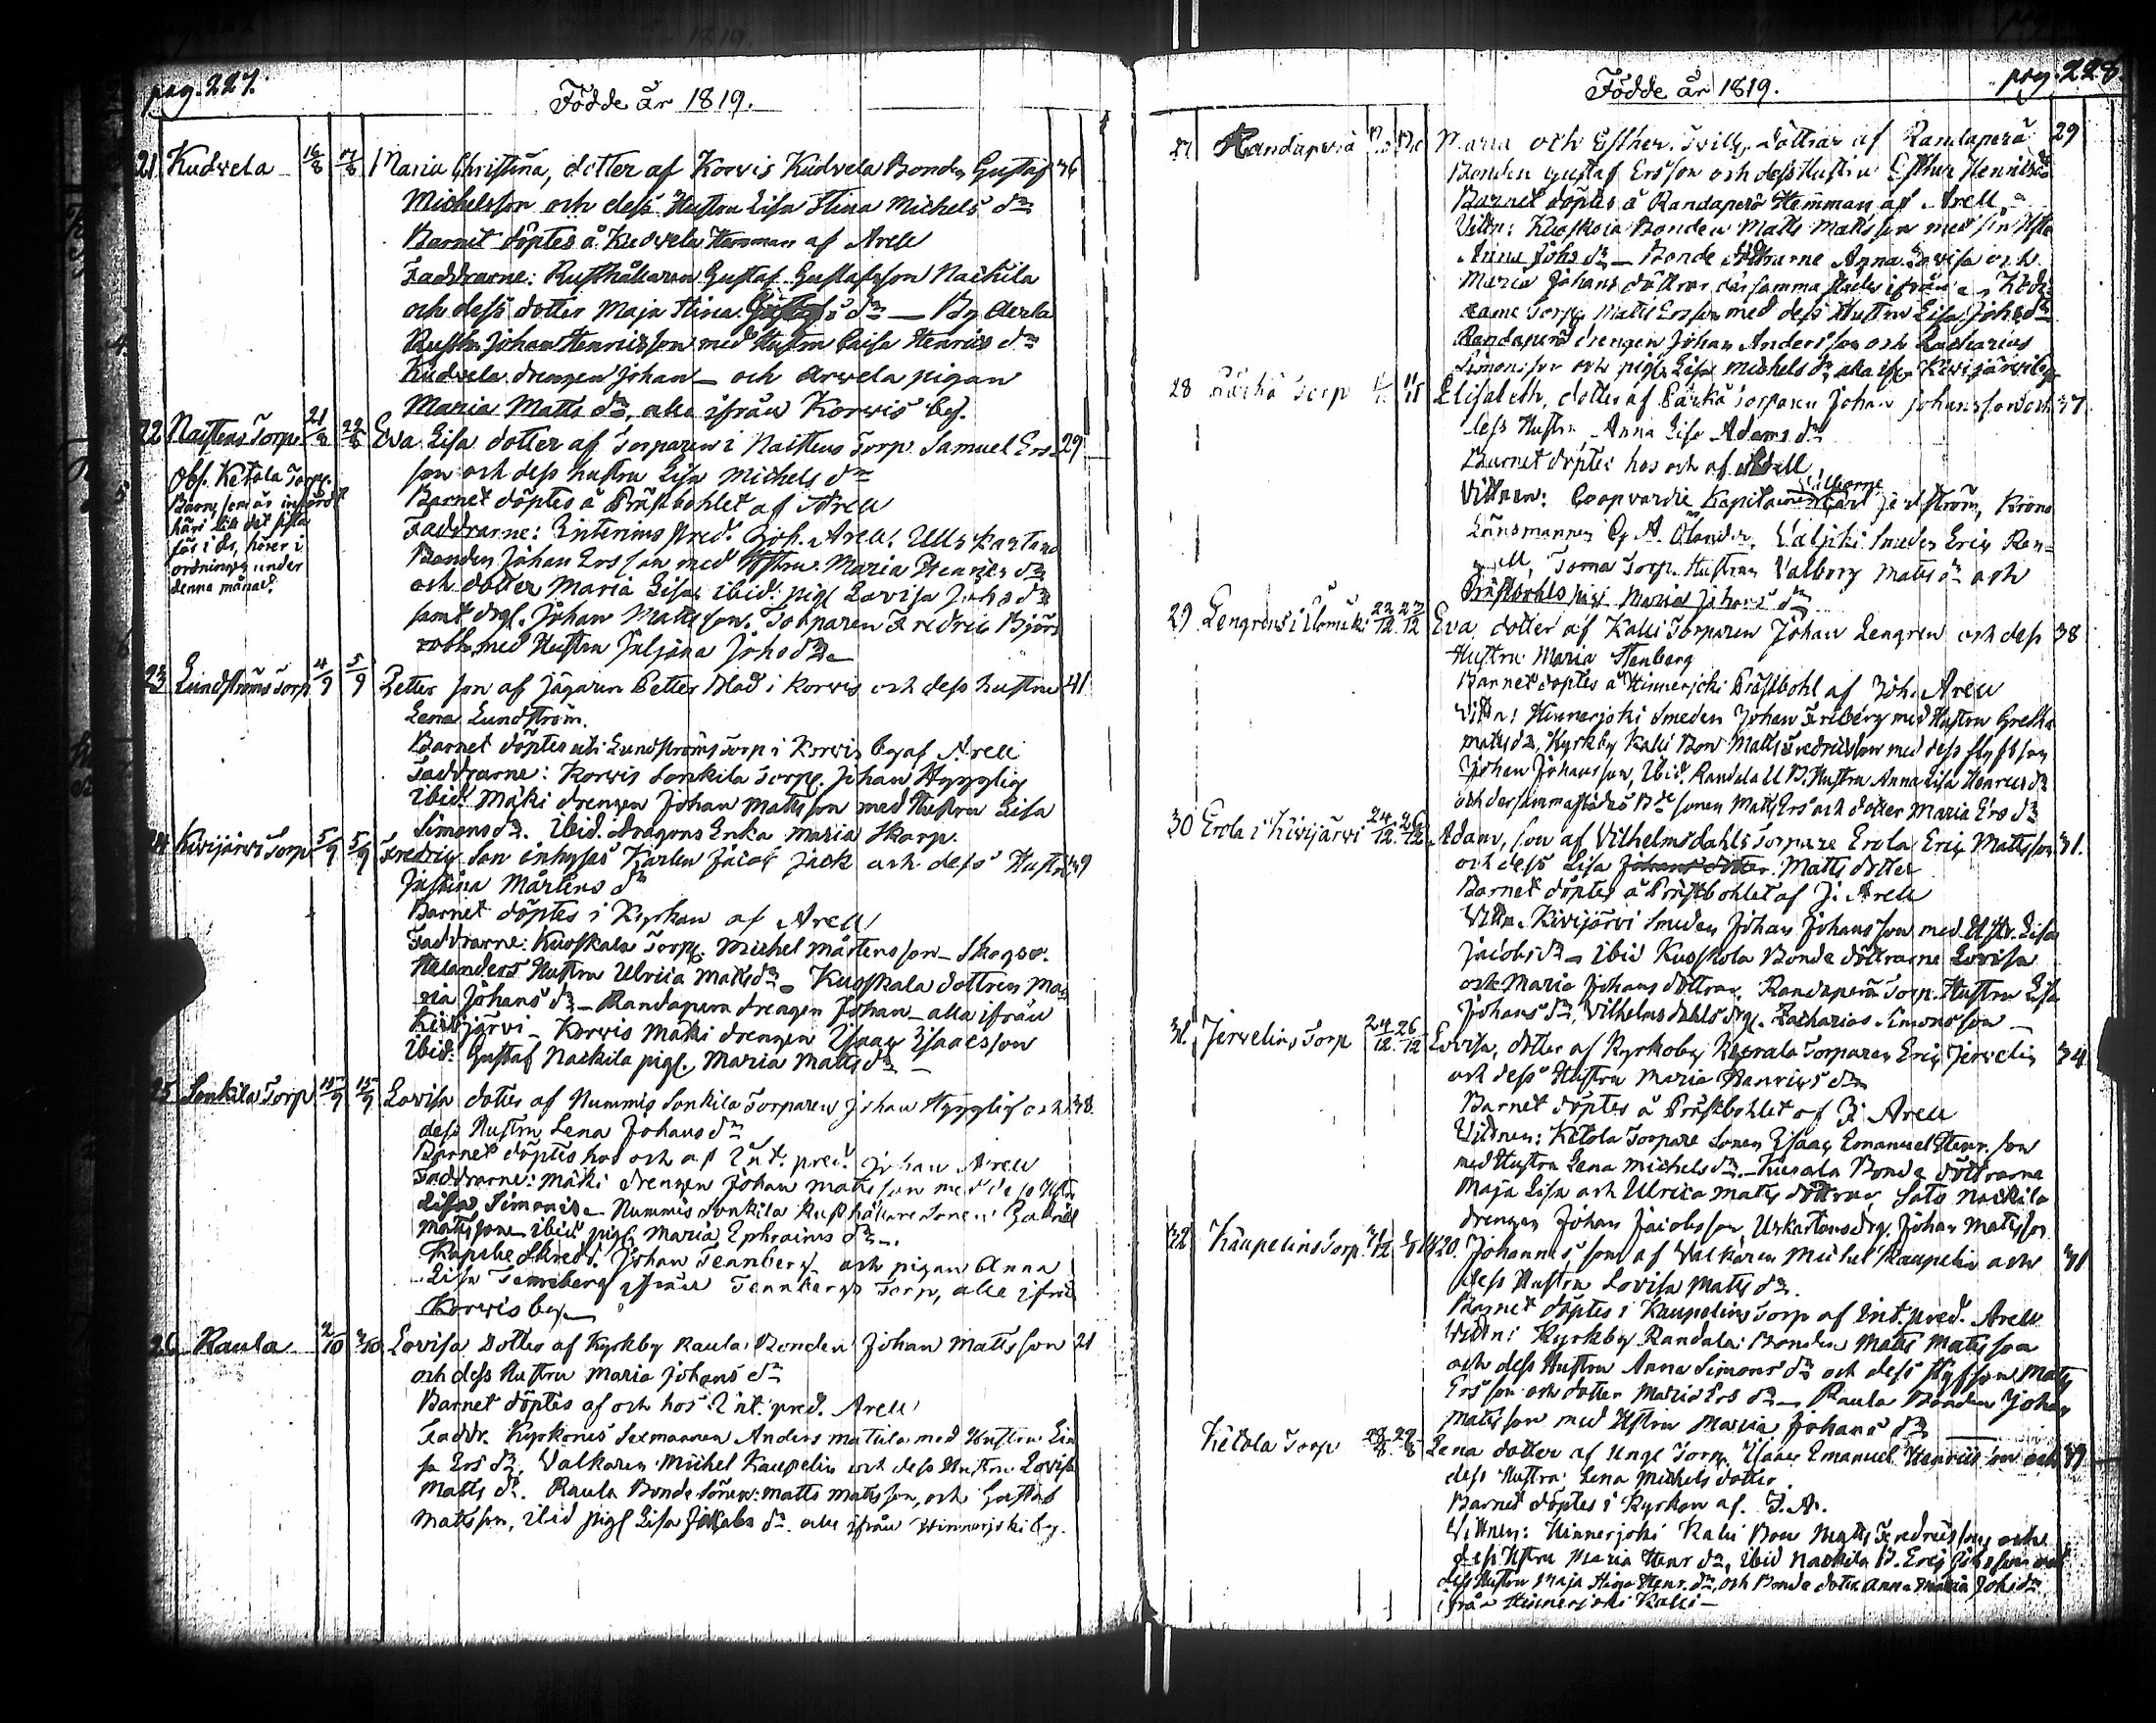 pag. 227.
Födde år 1819.
21 Kudvela 16/8 17/8 Maria Christina, dotter af Korvis Kudvela Bonden Gustaf 36
Michelsson och dess Hustru Lisa Stina Michels dr
Barnet döptes å Kudvela Hemman af Arell
Faddrarne: Rusthållaren Gustaf Gustafsson Nackila
och dess dotter Maja Stina dr — By
Johan Henricsson med Hustru Caisa Henrics dr
Kudvela drengen Johan — och Arvela pigan
Maria Matts dr, alla ifrån Korvis by.
22 Naittens Torp 21/8 22/8 Eva Lisa dotter af Torparen i Naittens Torp Samuel Ers- 29
son och dess hustru Lisa Michels dr
Barnet döptes å Prästbohlet af Arell
Faddrarne: Interims Pred. Joh. Arell. Ullskartano
Bonden Johan Ersson med Hustru Maria Henrics dr
och dotter Maria Lisa, ibid: pig. Lovisa Johs dr
samt drgl. Johan Mattsson. Torparen Fredric Björk
med Hustru Juljana Johs dr
Obs. Ketola Torps
Barn, som är infördt
här i
för i år, hörer i
ordningen under
denna månad.
23 Lundströms Torp 4/9 5/9 Petter son af Jägaren Petter Blad i Korvis och dess hustru 41
Lena Lundström.
Barnet döptes uti Lundströms Torp i Korvis by af Arell
Faddrarne: Korvis Sonkila Torp. Johan Hygglig
ibid. Mäki drengen Johan Mattsson med Hustru Lisa
Simons dr. ibid. dragons Enka Maria Skarp.
24 Kivijärvi Torp 5/9 5/9 Fredric Son inhyses Karlen Jacob Jack och dess Hustru 39
Justina Mårtens dr
Barnet döptes i Kyrkan af Arell
Faddrarne: Kuoskala Torp. Michel Mårtensson — Skogso.
Helanders Hustru Ulrica Matts dr — Kuoskala dottren Ma-
ria Johans dr — Randapera drengen Johan — alla ifrån
Kivijärvi — Korvis Mäki drengen Isaac Isaacsson
Ibid: Gustaf Nackila pig. Maria Matts dr —
25 Sonkila Torp 15/9 15/9 Lovisa dotter af Nummis Sonkila Torparen Johan Hygglig och 38
dess Hustru Lena Johans dr
Barnet döptes hos och af Int. pred. Johan Arell
Faddrarne: Mäki drengen Johan Mattsson med dess Hstr
Lisa Simonsd. Nummis Sonkila Rusthållare Sonen Gabriel
Mattsson ibid pig. Maria Ephraims dr —.
Johan Tennberg och pigan Anna
Lisa Tennberg ifrån Tennbergs Torp, alla ifrån
Korvis by —
26 Raula 2/10 3/10 Lovisa Dotter af Kyrkby Raula Bonden Johan Mattsson 21
och dess Hustru Maria Johans dr
Barnet döptes af och hos Int. pred. Arell
Faddr. Sexmannen Anders Matula med Hustru Li-
sa Ers dr, Valkaren Michel Kaupelin och dess Hustru Lovisa
Matts dr. Raula Bonde Sönen: Matts Mattsson, och Gustaf
Mattsson, ibid pig. Lisa Jakobs dr. alla ifrån Hinnerjoki by.
pag. 228
Födde år 1819.
27 Randaperä Maria och Esther. Tvill. döttrar af Randaperä 29
Bonden Gustaf Ersson och dess Hustru Esther Henrics dr
Barnet döptes å Randaperä Hemman af Arell
Vittn: Kuoskola Bonden Matts Mattsson med sin Hstr
Anna Johs dr — Bonde döttrarne Anna Lovisa och
Maria Johans döttrar därsamma städes ifrån
Torp. Matts Ersson med dess Hustru Lisa Johs dr
Randaperä drengen Johan Andersson och Zacharias
Simonsson och pig. Lisa Michels dr, alla ifr. Kivijärvi by
28 Torp Elisabeth, dotter af Torparen Johan Johansson och 37
dess Hustru Anna Lisa Adams dr
Barnet döptes hos och af Arell
Vittnen: Coopvardie Kapitainen Carl Krono
Länsmannen A. Olander, Smeden Eric Ran-
gell, Toma Torp. Hustrun Valborg Matts dr och
Prästbohls pig. Maria Johans dr
29 Lengrens i 22/12 27/12 Eva dotter af Kalli Torparen Johan Lengren och dess 38
Hustru Maria Stenberg
Barnet döptes å Hinnerjoki Prästbohl af Joh. Arell
Vittn: Hinnerjoki Smeden Johan Friberg med Hustru Gretha
Matts dr, Kyrkby Kalli Bon Matts Fredricsson med dess styfson
Johan Johansson, Ibid. Randala U. B. Hustru Anna Lisa Henrics dr
och dersammastädes Bde sonen Matts Ers och dotter Maria Ers dr
30 Erola i Kivijärvi 24/12 26/12 Adam, son af Vilhelmsdahls Torpare Erola Eric Mattsson 31.
och dess Lisa Johans dotter Matts dotter
Barnet döptes å Prästbohlet af J. Arell
Vittn. Kivijärvi Smeden Johan Johansson med Hstr. Lisa
Jacobs dr — Ibid Kuoskola Bonde döttrarne Lovisa
och Maria Johans döttrar, Randaperä Torp. Hustru Lisa
Johans dr, Vilhelmsdahls drgl. Zacharias Simonsson —
31. Jervelins Torp 24/12 26/12 Lovisa, dotter af Kyrkoby Torparen Eric Jervelin 34
och dess Hustru Maria Henrics dr
Barnet döptes å Prästbohlet af J. Arell
Vittnen: Ketola Torpare Sonen Isaac Emanuel Henr. son
med Hustru Lena Michels dr — Bonde döttrarne
Maja Lisa och Ulrica Matts döttrar Nackila
drengen Johan Jacobsson, drg. Johan Mattsson
32 Kaupelins Torp 31/12 1820. Johannes son af Valkaren Michel Kaupelin och 31
dess Hustru Lovisa Matts dr.
Barnet döptes i Kaupelins Torp af Int. pred. Arell
Vittn: Kyrkby Randala Bonden Matts Mattsson
och dess Hustru Anna Simons dr och dess styfson Matts
Ersson och dotter Maria Ers dr — Raula Bonden Johan
Mattsson med Hstru Maria Johans dr
Ketola Torp 28/8 29/8 Lena dotter af Unge Torp. Isaac Emanuel Henricsson och 39
dess Hustru Lena Michels dotter
Barnet döptes i Kyrkan af J. A.
Vittnen: Hinnerjoki Kalli Bon Matts Fredricsson och
dess Hstru Maria Henr dr, ibid Nackila B. Eric med
dess Hustru Maja Stina Henr. dr, och Bonde dotter Anna Maria Johs dr
ifrån Hinnerjoki Kalli —